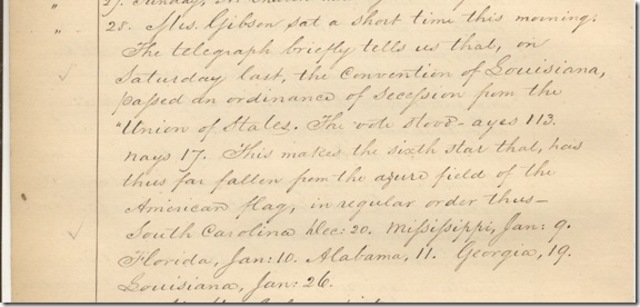 27. Sunday,
28. Mrs. Gibson sat a short time this morning.
The telegraph briefly tells us that, on
Saturday last, the Convention of Louisiana,
passed an ordinance of secession from the
"Union of States. The vote stood - ayes 113.
nays 17. This makes the sixth star that, has
thus far fallen from the azure field of the
American flag, in regular order thus—
South Carolina Dec: 20. Mississippi, Jan: 9.
Florida, Jan: 10. Alabama, 11. Georgia, 19.
Louisiana, Jan: 26.